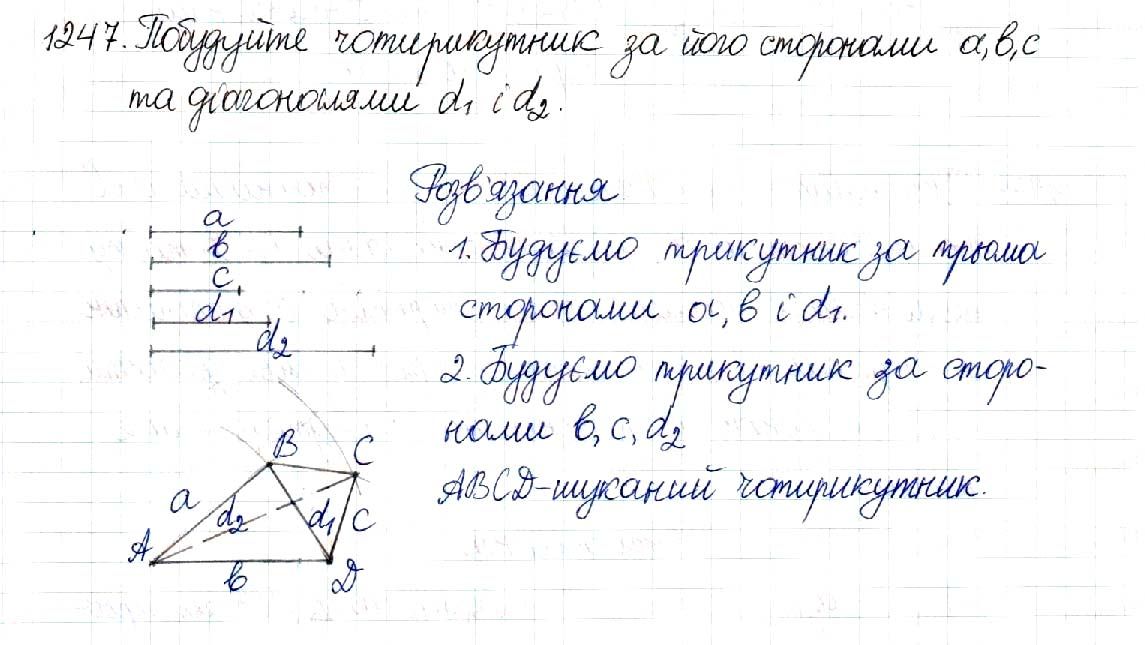 1247. Побудуйте чотирикутник за його сторонами a, b, c
та діагоналями d₁ і d₂.
Розв'язання
a
b
c
d₁
d₂
1. Будуємо трикутник за трьома
сторонами a, b і d₁.
2. Будуємо трикутник за сторо-
нами b, c, d₂
ABCD-шуканий чотирикутник.
B
C
a
d₂
d₁
c
A
b
D